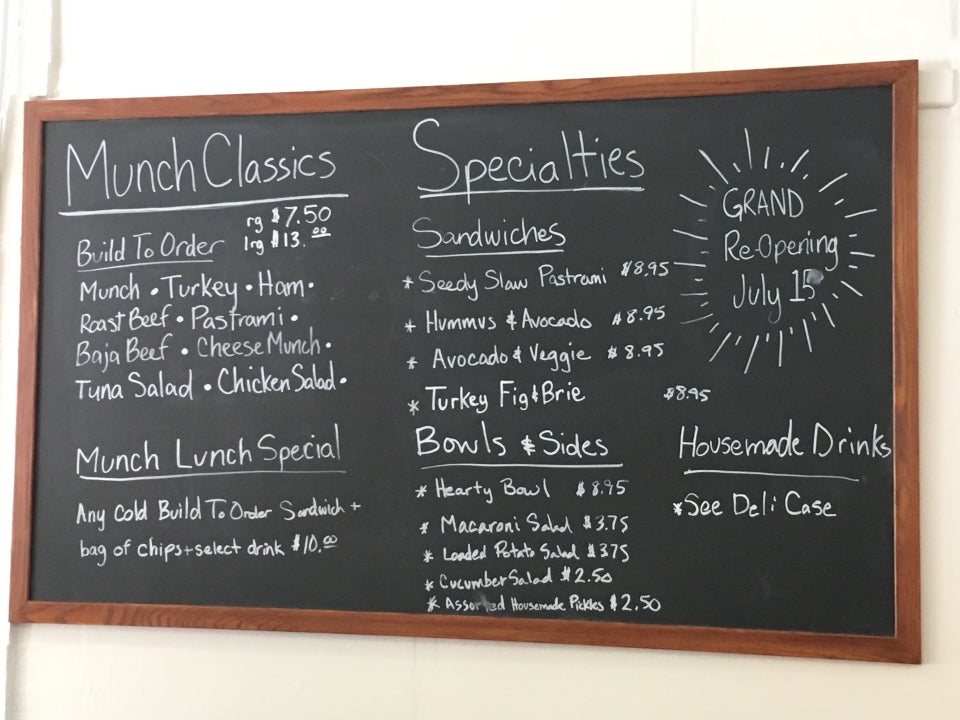 Munch Classics
rg $7.50
Build To Order lrg $13.00
Munch • Turkey • Ham •
Roast Beef • Pastrami •
Baja Beef • Cheese Munch •
Tuna Salad • Chicken Salad •
Munch Lunch Special
Any Cold Build To Order Sandwich +
bag of chips + select drink $10.00
Specialties
Sandwiches
* Seedy Slaw Pastrami $8.95
* Hummus & Avocado $8.95
* Avocado & Veggie $8.95
* Turkey Fig & Brie $8.95
Bowls & Sides
* Hearty Bowl $8.95
* Macaroni Salad $3.75
* Loaded Potato Salad $3.75
* Cucumber Salad $2.50
* Assorted Housemade Pickles $2.50
GRAND
Re-Opening
July 15
Housemade Drinks
* See Deli Case